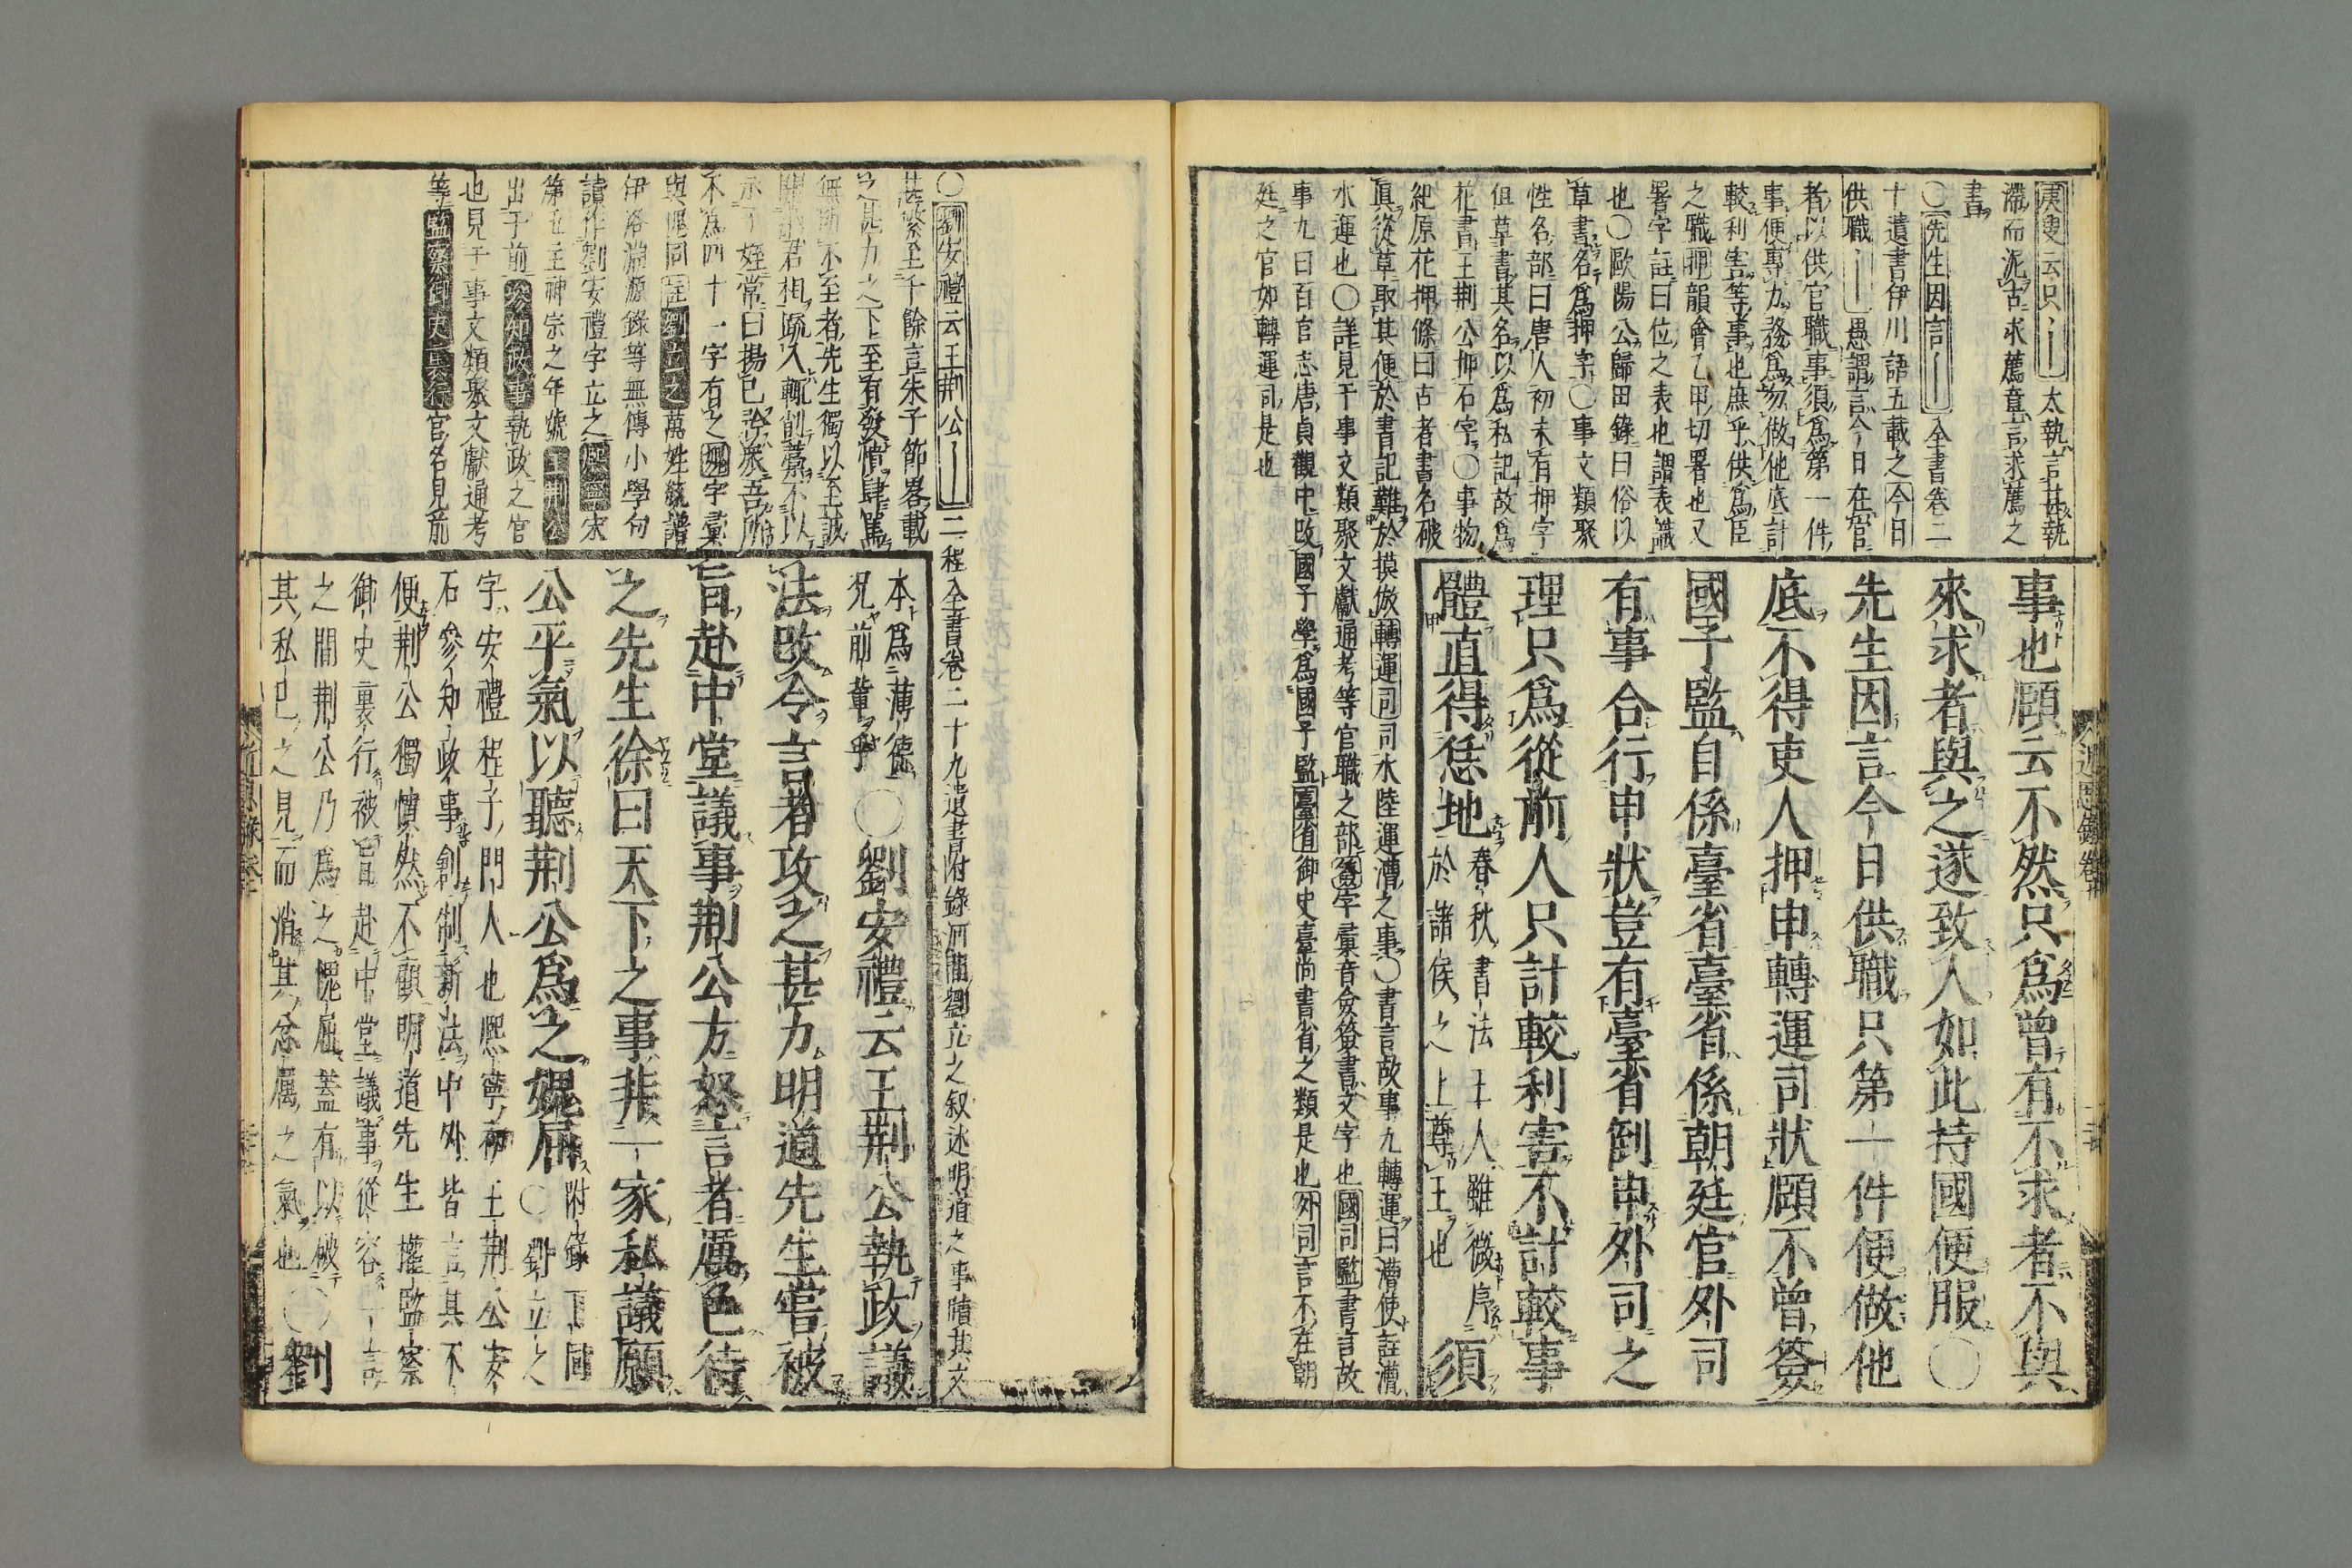 庚叟云只
太執言甚執
滯而泥古求薦意言求薦之
書
○先生因言
全書卷二
十遺書伊川語五載之今日
供職
愚謂言今日在官
者以供官職事須爲第一件
事便專力務爲勿做他底計
較利害等事也庶乎供爲臣
之職押韻會乙甲切署也又
署字註曰位之表也謂表識
也○歐陽公歸田錄曰俗以
草書名爲押字○事文類聚
性名部曰唐人初未有押字
但草書其名以爲私記故爲
花書王荆公押石字○事物
紀原花押條曰古者書名破
眞從草取其便於書記難於摸倣轉運司司水陸運漕之事○書言故事九轉運曰漕使註漕
水運也○詳見于事文類聚文獻通考等官職之部簽字彙音僉簽書文字也國司監書言故
事九曰百官志唐貞觀中改國子學爲國子監臺省御史臺尚書省之類是也外司言不在朝
廷之官如轉運司是也
事也頤云不然只爲曾有不求者不與
來求者與之遂致人如此持國便服○
先生因言今日供職只第一件便做他
底不得吏人押申轉運司狀頤不曾簽
國子監自係臺省臺省係朝廷官外司
有事合行申狀豈有臺省倒申外司之
理只爲從前人只計較利害不計較事
體直得恁地
春秋書法王人雖微序
於諸侯之上尊王也
須
近思錄卷十
○劉安禮云王荆公
二程全書卷二十九遺書附錄河間劉立之叙述明道之事蹟其文
甚繁至千餘言朱子節畧載
之甚力之下至有發憤肆罵
無所不至者先生獨以至誠
開納君相疏入輒削藁不以
示子姪常曰揚己矜衆吾所
不爲四十一字有之媿字彙
與愧同註劉立之萬姓統譜
伊洛淵源錄等無傳小學句
讀作劉安禮字立之熙寧宋
第五主神宗之年號王荆公
出于前參知政事執政之官
也見于事文類聚文獻通考
等監察御史裏行官名見前
本爲薄德
況前輩乎
○劉安禮云王荆公執政議
法改令言者攻之甚力明道先生嘗被
旨赴中堂議事荆公方怒言者厲色待
之先生徐曰天下之事非一家私議願
公平氣以聽荆公爲之媿屈
附錄下同
○劉立之
字安禮程子門人也熙寧初王荆公安
石參知政事創制新法中外皆言其不
便荆公獨憤然不顧明道先生權監察
御史裏行被旨赴中堂議事從容一言
之間荆公乃爲之愧屈蓋有以破
其私己之見而消其忿厲之氣也○劉